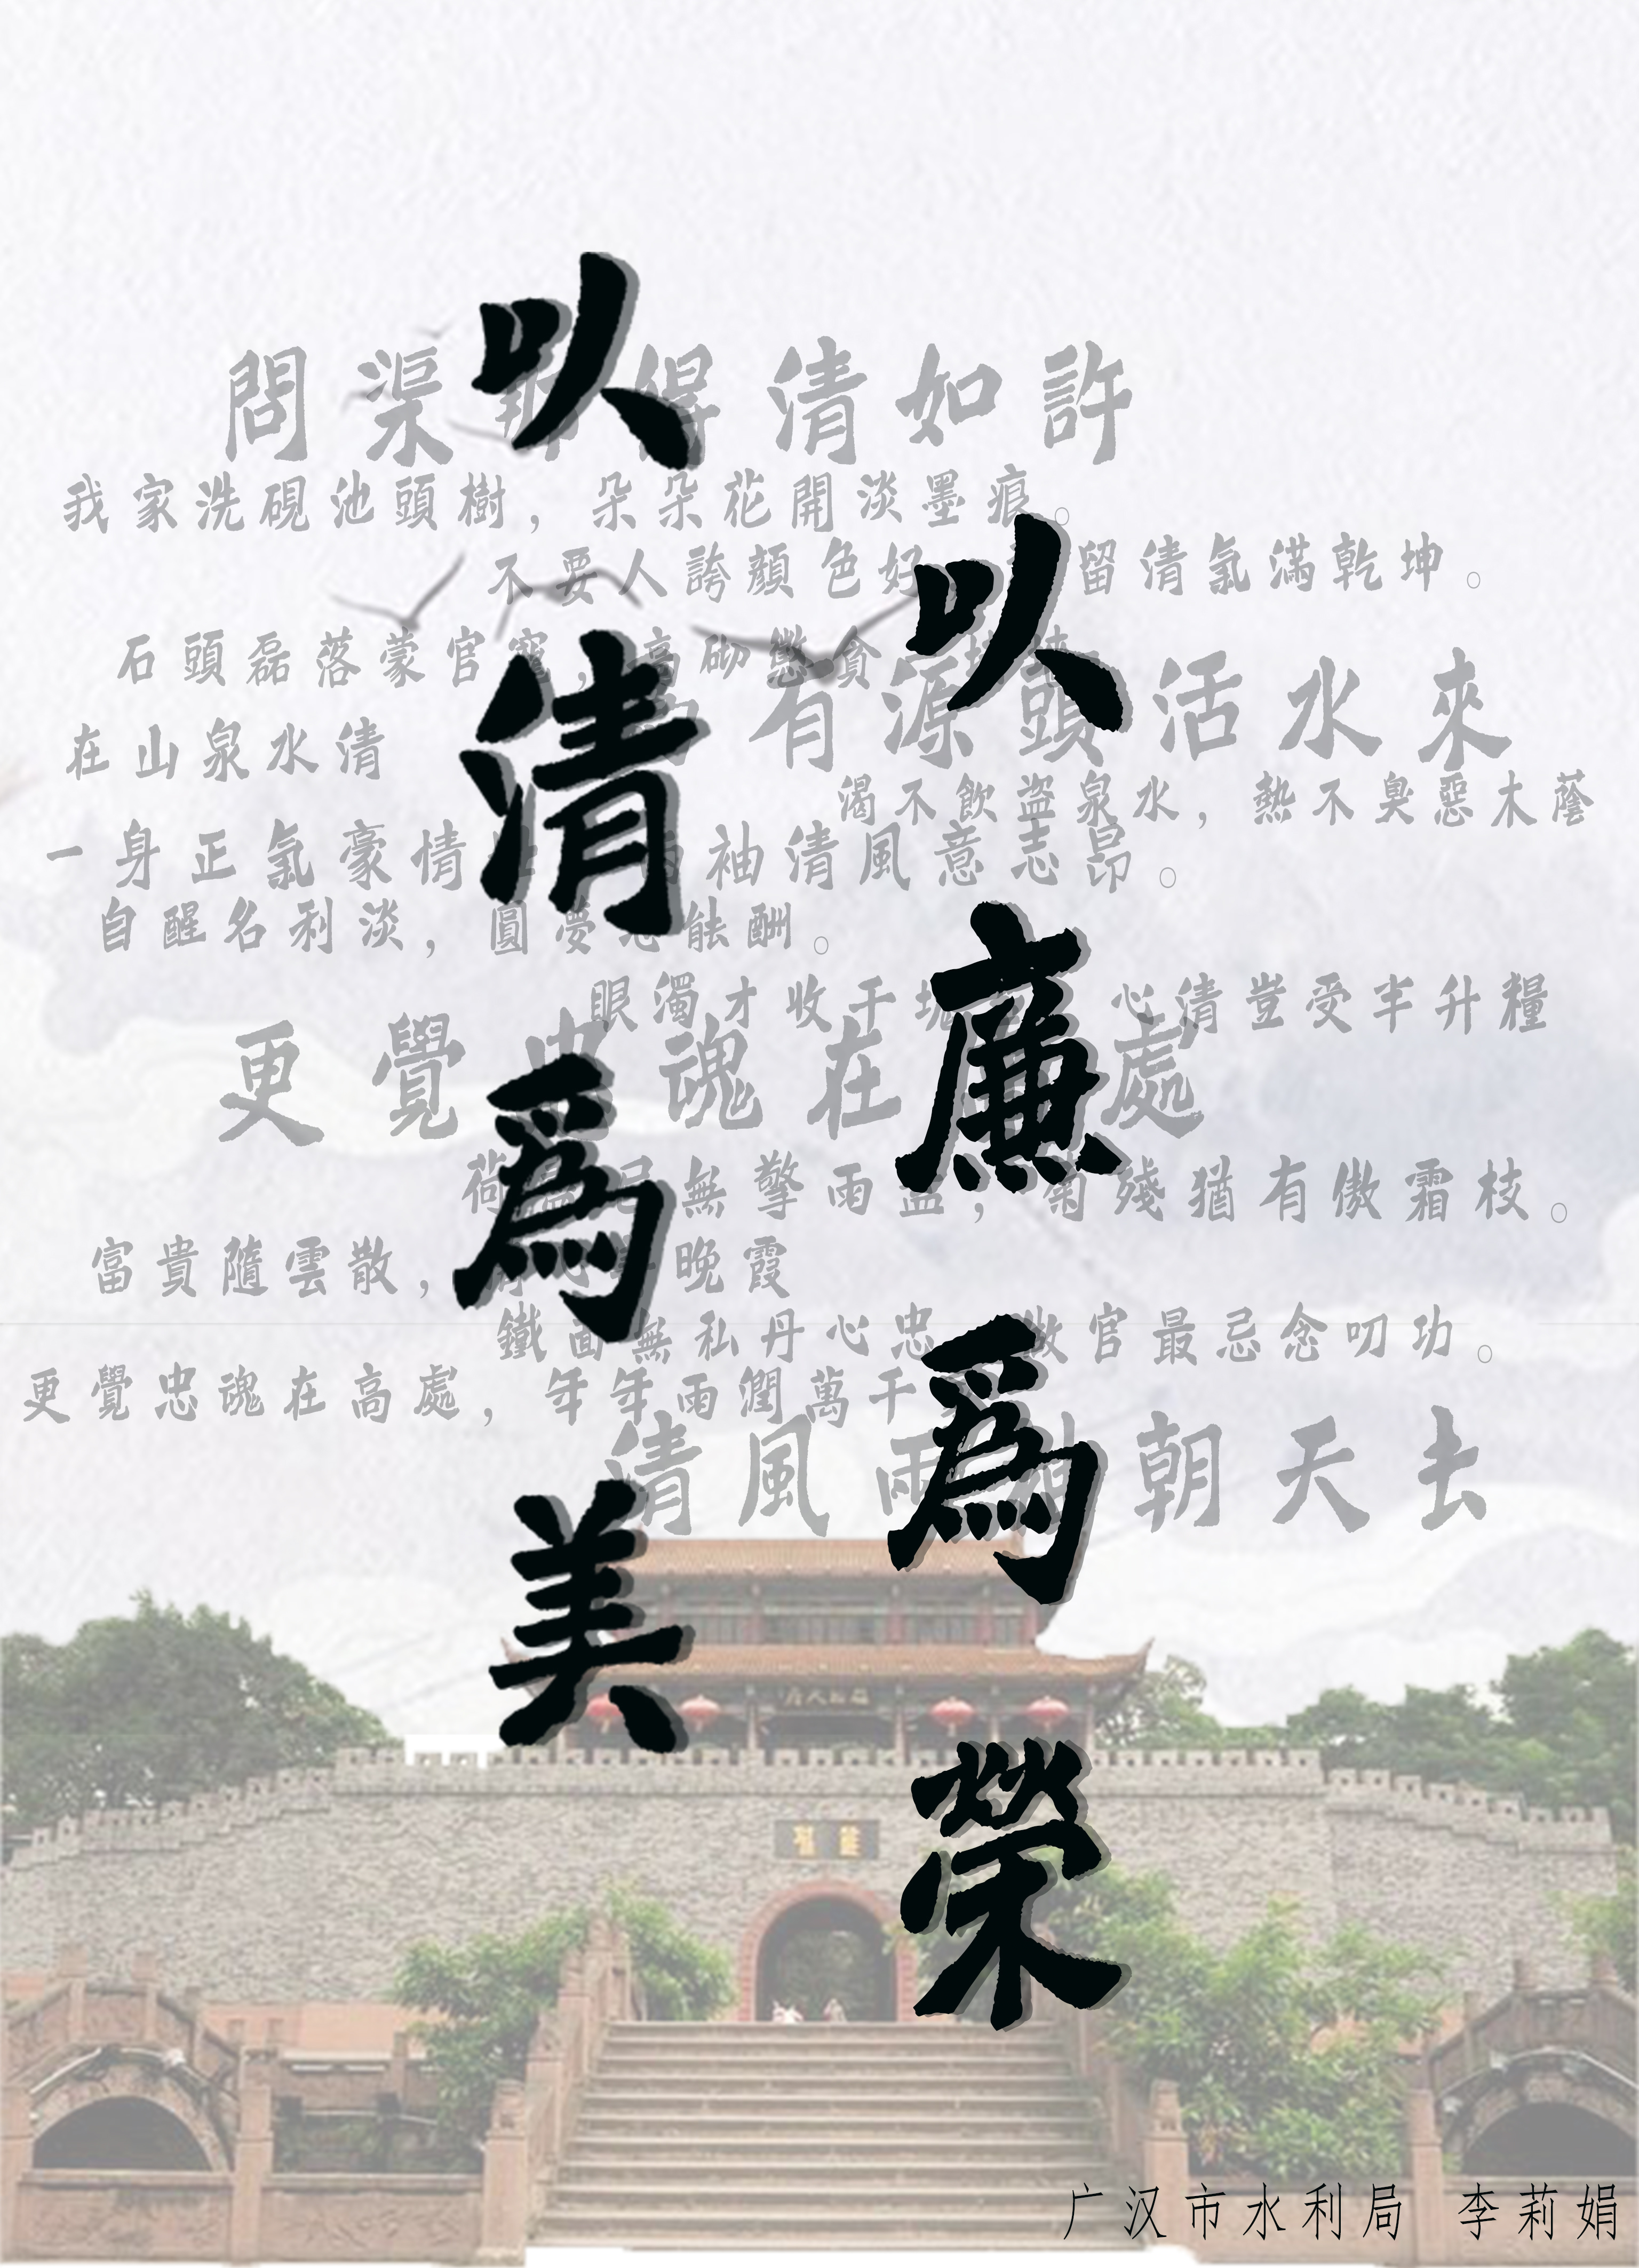 以清為美
以廉為榮
問渠 得清如許
我家洗硯池頭樹，朵朵花開淡墨痕。
不要人誇顏色好 留清氣滿乾坤。
石頭磊落蒙官寵，高砌懲貪
有源頭活水來
在山泉水清
渴不飲盜泉水，熱不臭惡木蔭
一身正氣豪情 袖清風意志昂。
自醒名利淡，圓夢 能酬。
眼濁才收千塊 心清豈受半升糧
更覺忠魂在 處
荷 無擎雨蓋，菊殘猶有傲霜枝。
富貴隨雲散， 晚霞
鐵面無私丹心忠 做官最忌念叨功。
更覺忠魂在高處，年年雨潤萬千
清風兩袖朝天去
广汉市水利局 李莉娟